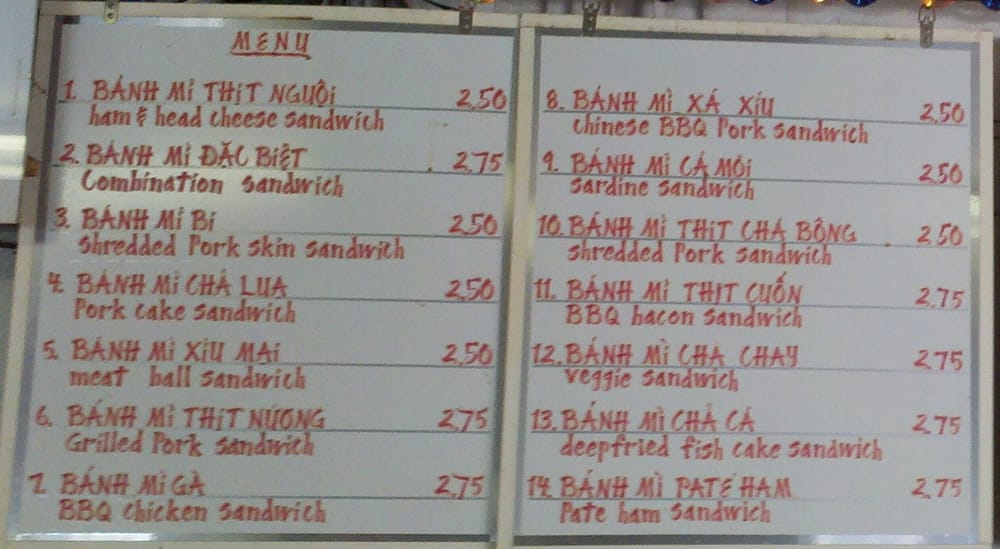 MENU
1. BÁNH MÌ THỊT NGUỘI 2.50
ham & head cheese sandwich
2. BÁNH MÌ ĐẶC BIỆT 2.75
Combination sandwich
3. BÁNH MÌ BÌ 2.50
shredded Pork skin sandwich
4. BÁNH MÌ CHẢ LỤA 2.50
Pork cake sandwich
5. BÁNH MÌ XÍU MẠI 2.50
meat ball sandwich
6. BÁNH MÌ THỊT NƯỚNG 2.75
Grilled Pork sandwich
7. BÁNH MÌ GÀ 2.75
BBQ chicken sandwich
8. BÁNH MÌ XÁ XÍU 2.50
chinese BBQ Pork sandwich
9. BÁNH MÌ CÁ MÒI 2.50
sardine sandwich
10. BÁNH MÌ THỊT CHÀ BÔNG 2.50
shredded Pork sandwich
11. BÁNH MÌ THỊT CUỐN 2.75
BBQ bacon sandwich
12. BÁNH MÌ CHẢ CHAY 2.75
veggie sandwich
13. BÁNH MÌ CHẢ CÁ 2.75
deepfried fish cake sandwich
14. BÁNH MÌ PATÉ HAM 2.75
Pate ham sandwich